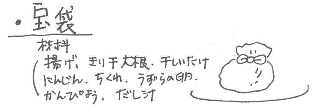 ・宝袋
材料
揚げ、きり干大根、干しいたけ
にんじん、ちくわ、うずらの卵、
かんぴょう、だし汁